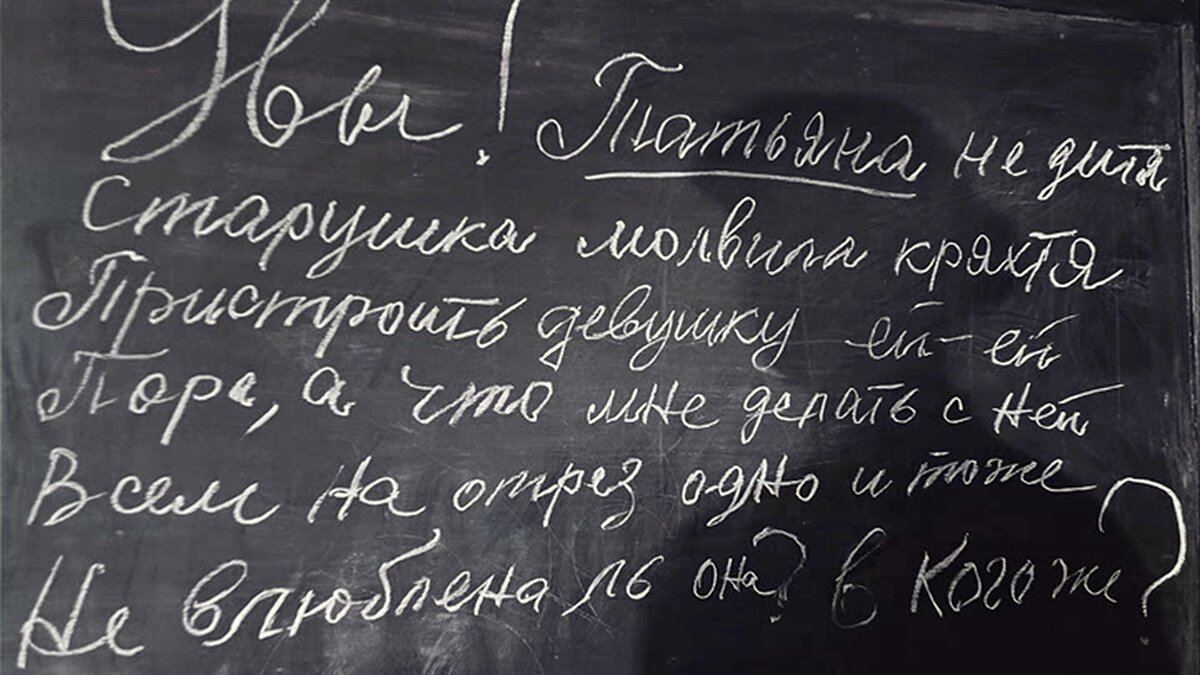 Увы! Татьяна не дитя
Старушка молвила кряхтя
Пристроить девушку ей-ей
Пора, а что мне делать с ней
Всем на отрез одно и тоже
Не влюблена ль она? в кого же?